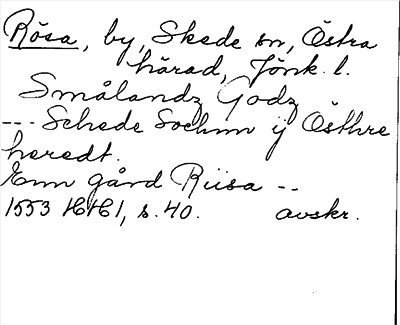 Rösa, by, Skede sn, Östra
härad, Jönk. l.
Smålandz Godz
--- Schede Sochnn ij Östhre
heredt.
Enn gård Riisa --
1553 HH1, s. 40. avskr.